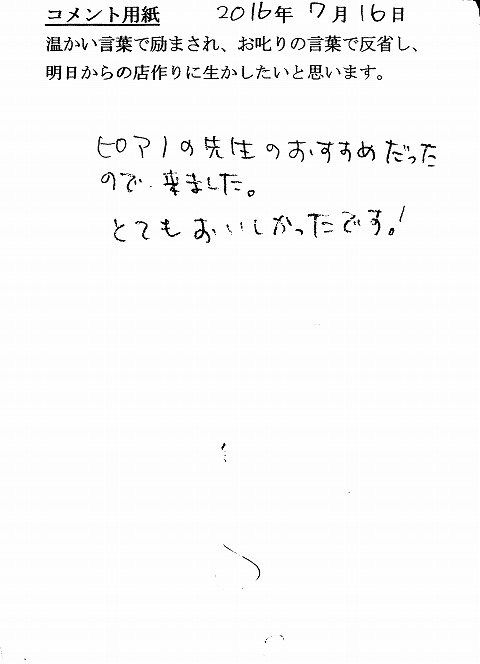 コメント用紙 2016年 7月16日
温かい言葉で励まされ、お叱りの言葉で反省し、
明日からの店作りに生かしたいと思います。
ピアノの先生のおすすめだった
ので、来ました。
とてもおいしかったです。!